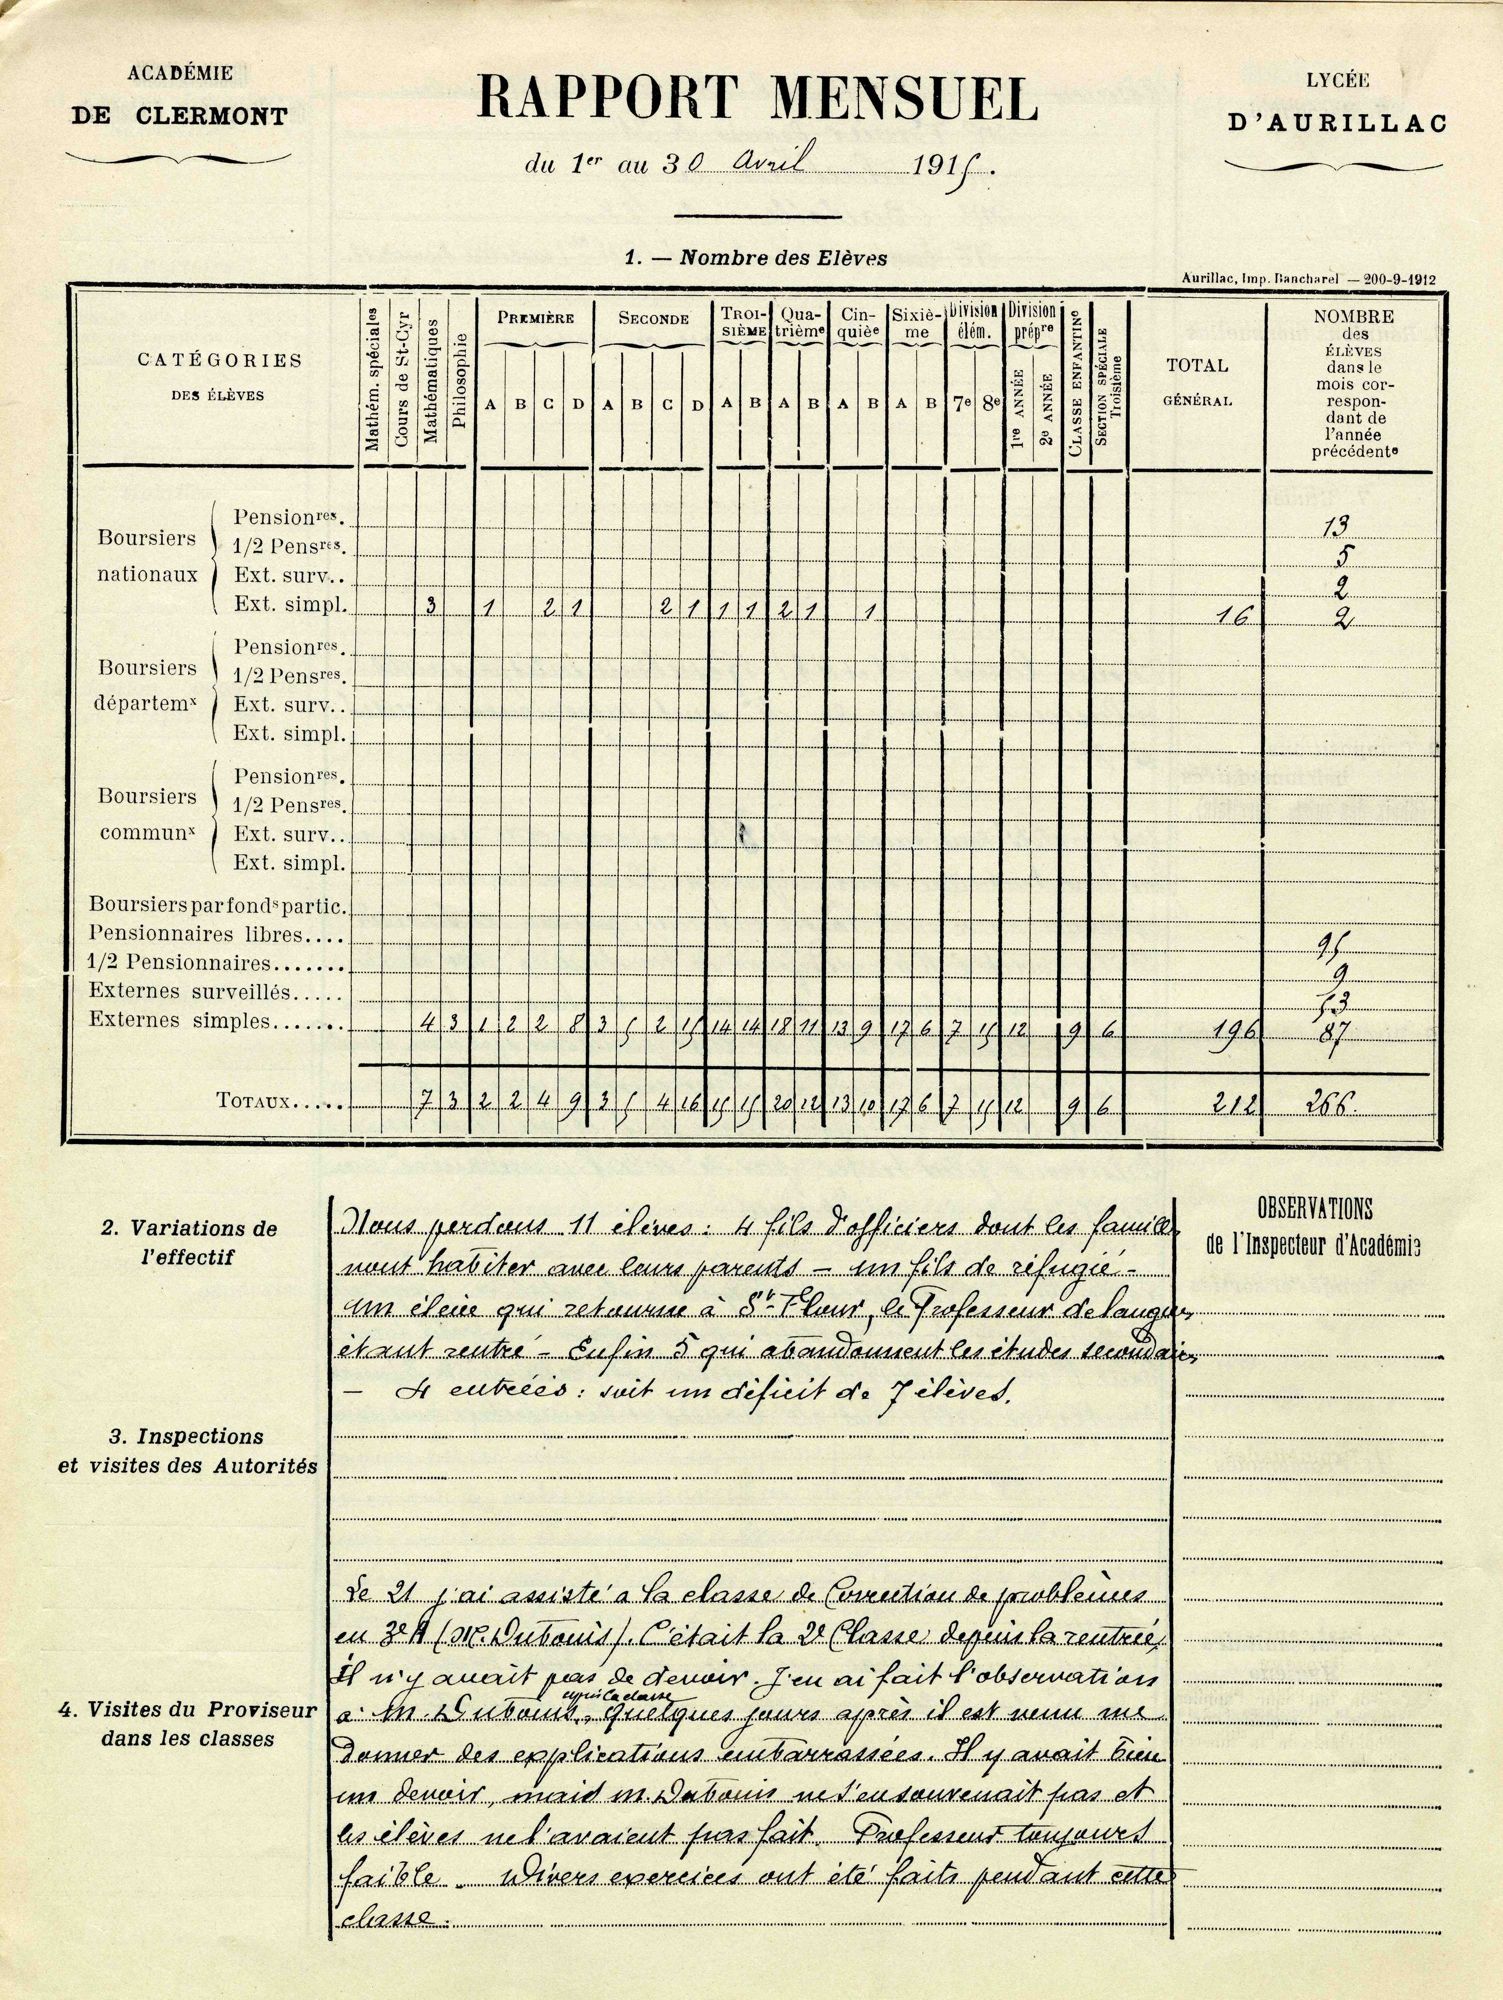 ACADÉMIE
DE CLERMONT
RAPPORT MENSUEL
du 1er au 30 Avril 1915.
LYCÉE
D'AURILLAC
1. — Nombre des Elèves
Aurillac, Imp. Bancharel — 200-9-1912
CATÉGORIES
DES ÉLÈVES
Mathém. spéciales
Cours de St-Cyr
Mathématiques
Philosophie
PREMIÈRE
A B C D
SECONDE
A B C D
TROISIÈME
A B
Quatrième
A B
Cinquièe
A B
Sixième
A B
Division élém.
7e 8e
Division prépre
1re ANNÉE
2e ANNÉE
CLASSE ENFANTINe
SECTION SPÉCIALE
Troisième
TOTAL
GÉNÉRAL
NOMBRE
des
ÉLÈVES
dans le
mois cor-
respon-
dant de
l'année
précédente
Boursiers nationaux
Pensionres. 13
1/2 Pensres. 5
Ext. surv.. 2
Ext. simpl. 3 1 2 1 2 1 1 1 2 1 1 16 2
Boursiers départemx
Pensionres.
1/2 Pensres.
Ext. surv..
Ext. simpl.
Boursiers communx
Pensionres.
1/2 Pensres.
Ext. surv..
Ext. simpl.
Boursiers par fonds partic.
Pensionnaires libres.... 95
1/2 Pensionnaires....... 9
Externes surveillés..... 53
Externes simples....... 4 3 1 2 2 8 3 5 2 15 14 14 18 11 13 9 17 6 7 15 12 9 6 196 87
TOTAUX..... 7 3 2 2 4 9 3 5 4 16 15 15 20 12 13 10 17 6 7 15 12 9 6 212 266.
2. Variations de
l'effectif
Nous perdons 11 élèves : 4 fils d'officiers dont les familles
vont habiter avec leurs parents – un fils de réfugié –
Un élève qui retourne à St Flour, le Professeur de langues
étant rentré – Enfin 5 qui abandonnent les études secondaires
– 4 entrées : soit un déficit de 7 élèves.
OBSERVATIONS
de l'Inspecteur d'Académie
3. Inspections
et visites des Autorités
4. Visites du Proviseur
dans les classes
Le 21 j'ai assisté à la classe de Correction de problèmes
en 3e A (M. Dubouis). C'était la 2e Classe depuis la rentrée,
il n'y avait pas de devoir. J'en ai fait l'observation
après la classe
à M. Dubouis, Quelques jours après il est venu me
donner des explications embarrassées. Il y avait bien
un devoir, mais M. Dubouis ne s'en souvenait pas et
les élèves ne l'avaient pas fait. Professeur toujours
faible. Divers exercices ont été faits pendant cette
classe.